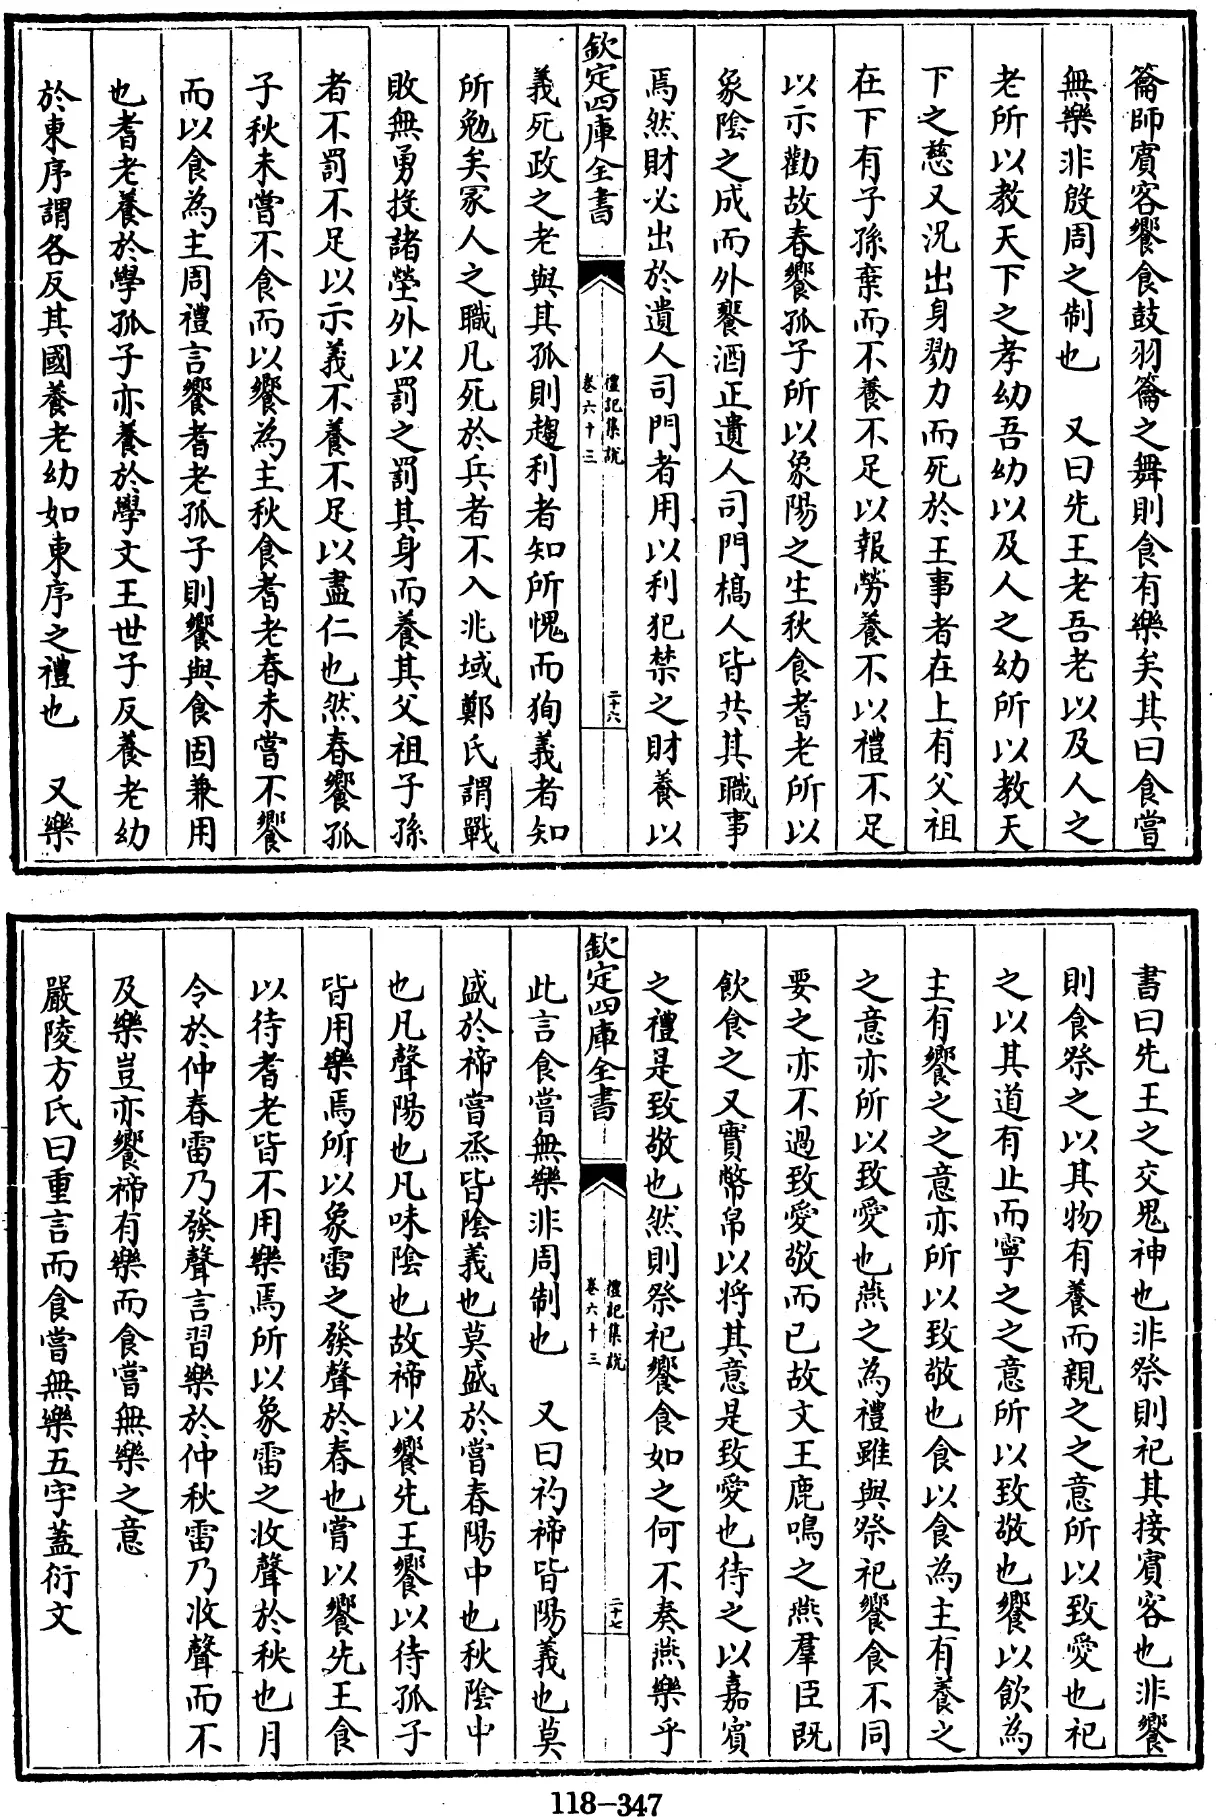 籥師賓客饗食鼓羽籥之舞則食有樂矣其曰食嘗
無樂非殷周之制也　又曰先王老吾老以及人之
老所以教天下之孝幼吾幼以及人之幼所以教天
下之慈又況出身勠力而死於王事者在上有父祖
在下有子孫棄而不養不足以報勞養不以禮不足
以示勸故春饗孤子所以象陽之生秋食耆老所以
象陰之成而外饔酒正遺人司門槁人皆共其職事
焉然財必出於遺人司門者用以利犯禁之財養以
欽定四庫全書
禮記集說
卷六十三
二十六
義死政之老與其孤則趨利者知所愧而狥義者知
所勉矣冢人之職凡死於兵者不入兆域鄭氏謂戰
敗無勇投諸塋外以罰之罰其身而養其父祖子孫
者不罰不足以示義不養不足以盡仁也然春饗孤
子秋未嘗不食而以饗為主秋食耆老春未嘗不饗
而以食為主周禮言饗耆老孤子則饗與食固兼用
也耆老養於學孤子亦養於學文王世子反養老幼
於東序謂各反其國養老幼如東序之禮也　又樂
書曰先王之交鬼神也非祭則祀其接賓客也非饗
則食祭之以其物有養而親之之意所以致愛也祀
之以其道有止而寧之之意所以致敬也饗以飲為
主有饗之之意亦所以致敬也食以食為主有養之
之意亦所以致愛也燕之為禮雖與祭祀饗食不同
要之亦不過致愛敬而已故文王鹿鳴之燕羣臣既
飲食之又實幣帛以將其意是致愛也待之以嘉賓
之禮是致敬也然則祭祀饗食如之何不奏燕樂乎
欽定四庫全書
禮記集說
卷六十三
二十七
此言食嘗無樂非周制也　又曰礿禘皆陽義也莫
盛於禘嘗烝皆陰義也莫盛於嘗春陽中也秋陰中
也凡聲陽也凡味陰也故禘以饗先王饗以待孤子
皆用樂焉所以象雷之發聲於春也嘗以饗先王食
以待耆老皆不用樂焉所以象雷之收聲於秋也月
令於仲春雷乃發聲言習樂於仲秋雷乃收聲而不
及樂豈亦饗禘有樂而食嘗無樂之意
嚴陵方氏曰重言而食嘗無樂五字蓋衍文
118-347